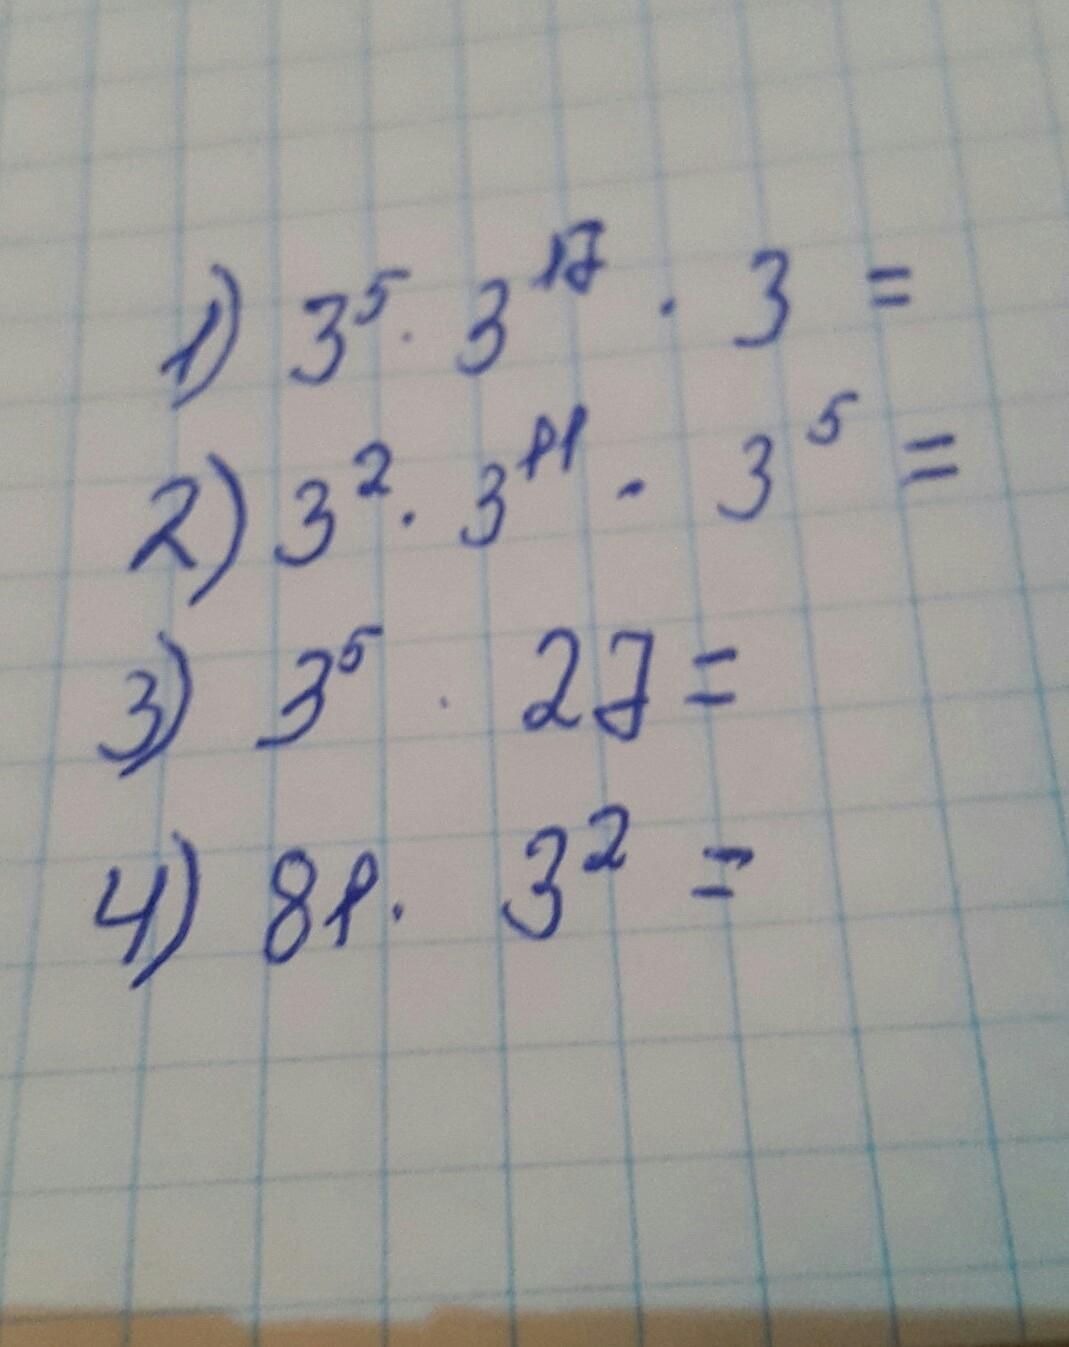 1) 3⁵ · 3¹⁷ · 3 =
2) 3² · 3¹¹ · 3⁵ =
3) 3⁵ · 27 =
4) 81 · 3² =